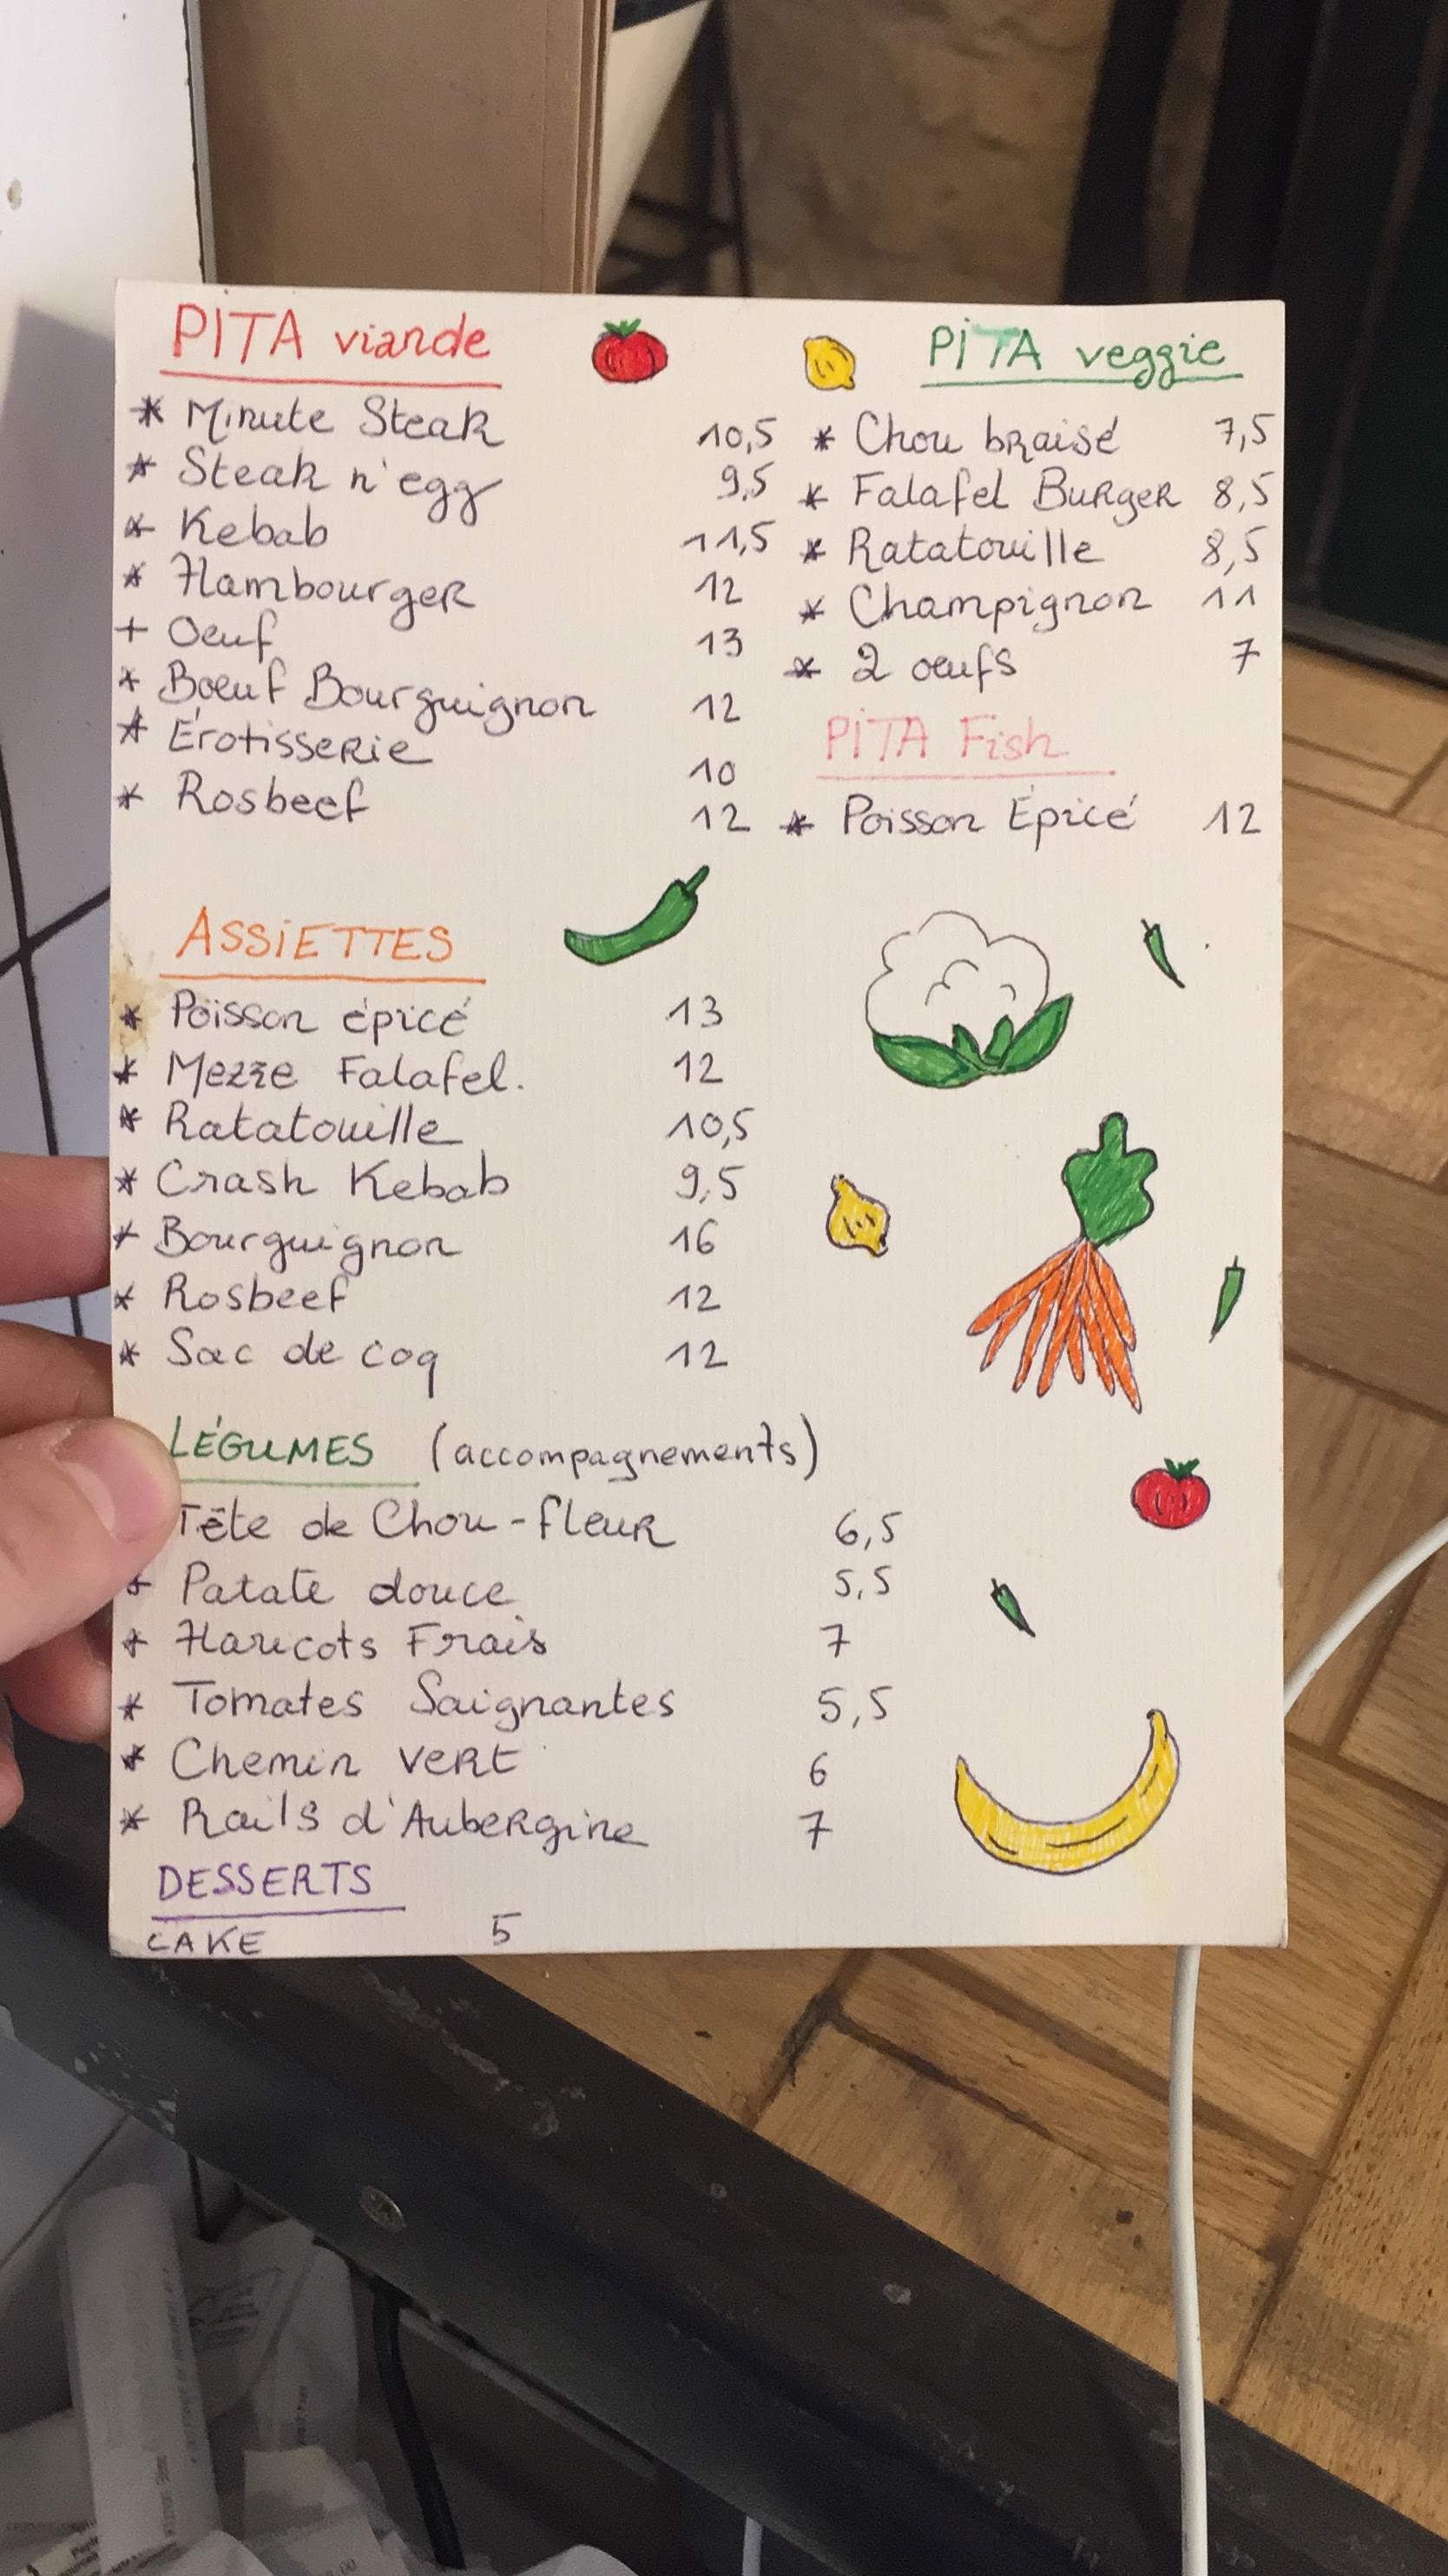 PITA viande
* Minute Steak 10,5
* Steak n'egg 9,5
* Kebab 11,5
* Hambourger 12
+ Oeuf 13
* Bœuf Bourguignon 12
* Érotisserie 10
* Rosbeef 12
PITA veggie
* Chou braisé 7,5
* Falafel Burger 8,5
* Ratatouille 8,5
* Champignon 11
* 2 œufs 7
PITA Fish
* Poisson Épicé 12
ASSIETTES
* Poisson épicé 13
* Mezze Falafel. 12
* Ratatouille 10,5
* Crash Kebab 9,5
* Bourguignon 16
* Rosbeef 12
* Sac de coq 12
LÉGUMES (accompagnements)
Tête de Chou-fleur 6,5
* Patate douce 5,5
* Haricots Frais 7
* Tomates Saignantes 5,5
* Chemin vert 6
* Rails d'Aubergine 7
DESSERTS
CAKE 5